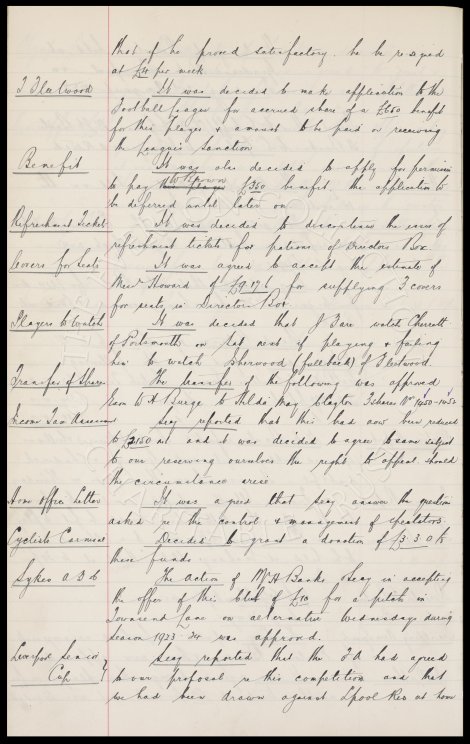 that if he proved satisfactory he be resigned
at £4 per week
T. Fleetwood It was decided to make application to the
Football League for accrued share of a £650 benefit
for this Player & amount to be paid on receiving
the Leagues sanction
Benefit It was also decided to apply for permission
to pay W Brown £350 benefit the application to
be deferred until later on
Refreshment Tickets It was decided to discontinue the issue of
refreshment tickets for patrons of Directors Box.
Covers for Seats It was agreed to accept the estimate of
Howard of £9.17.6 for supplying 3 covers
for seats in Directors Box.
Players to Watch It was decided that J Fare watch Cherrett
of Portsmouth on Sat next if playing & failing
him to watch Sherwood (fullback) of Fleetwood
Transfer of Shares The transfer of the following was approved
from W A Burge to Hilda May Clayton 3 shares Nº 1450-1452
Income Tax Secy reported that this had now been reduced
to £2150 and it was decided to agree to same subject
to our reserving ourselves the right to appeal should
the circumstances arise
Home Office Letter It was agreed that Secy answer the questions
asked re the control & management of spectators.
Cyclists Carnival Decided to grant a donation of £3.3.0 to
these funds
Sykes The action of Mr H Banks Secy in accepting
the offer of this club of £10 for a pitch in
Townsend Lane on alternative Wednesdays during
season 1923-24 was approved.
Liverpool Senior Cup } Secy reported that the FA had agreed
to our proposal re this competition and that
we had been drawn against Lpool Res at home